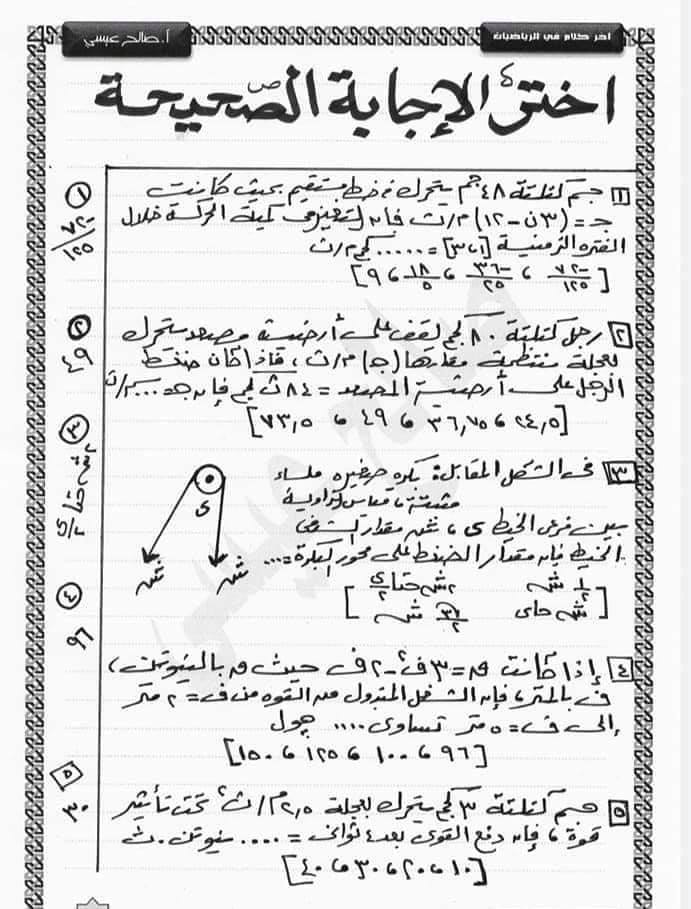 أ. صالح عبسي
آخر كلام في الرياضيات
اختر الإجابة الصحيحة
١ جسم كتلته ٤٨ جم يتحرك فى خط مستقيم بحيث كانت
جـ = (٣ن - ١٢) م/ث فإن لتغير فى كمية الحركة خلال
الفترة الزمنية [١،٣] = ..... كجم م/ث
[٧٢-/١٢٥ ، ٣٦-/٢٥ ، ١٨-/٥ ، ٩]
٢ رجل كتلته ٨٠ كجم يقف على أرضية مصعد يتحرك
بعجلة منتظمة مقدارها (جـ) م/ث، فإذا كان ضغط
الرجل على أرضية المصعد = ٨٤ ث كجم فإن جـ = .... سم/ث
[٢٤,٥ ، ٣٦,٧٥ ، ٤٩ ، ٧٣,٥]
٣ فى الشكل المقابل: بكرة صغيره ملساء
مثبتة، قياس الزاوية
بين فرعى الخيط ى ، شـ مقدار الشد فى
الخيط فإن مقدار الضغط على محور البكرة = ....
[١/٢ شـ ٢شـ حتا ى/٢
شـ حاى √٣/٢ شـ]
ى
شـ شـ
٤ إذا كانت ق = ٣ف² - ٢ف حيث ق بالنيوتن،
ف بالمتر، فإن الشغل المبذول من القوه من ف = ٢ متر
إلى ف = ٥ متر تساوى .... جول
[٩٦ ، ١٠٠ ، ١٢٥ ، ١٥٠]
٥ جسم كتلته ٣ كجم يتحرك بعجلة ٢,٥ م/ث² تحت تأثير
قوة ، فإن دفع القوى بعد ٤ ثوانى = .... نيوتن.ث
[١٠ ، ٢٠ ، ٣٠ ، ٤٠]
١
٧٢-/١٢٥
٢
٤٩
٣
٢شـ حتا ى/٢
٤
٩٦
٥
٣٠
صالح عبسي